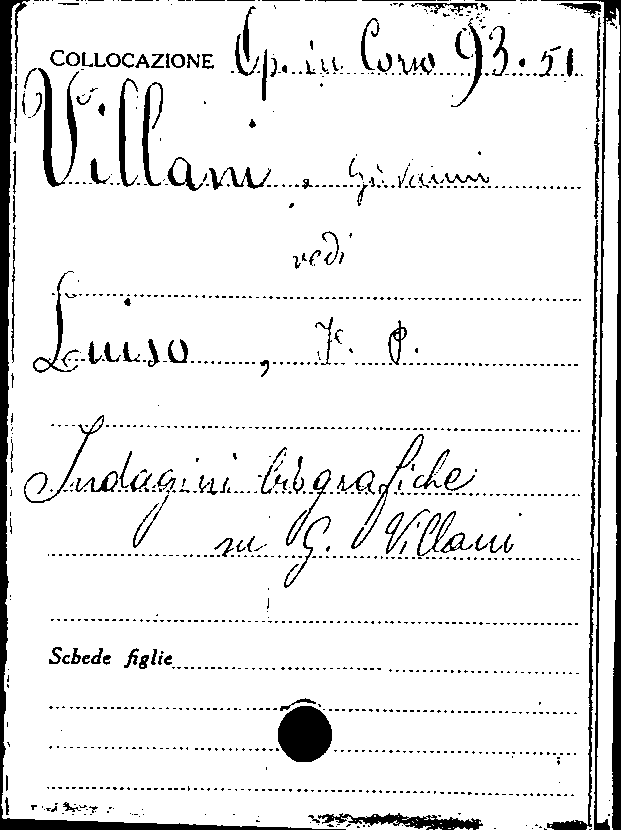 COLLOCAZIONE Op. in Corso 93.51
Villani, Giovanni
vedi
Luiso, F. P.
Indagini biografiche
su G. Villani
Schede figlie